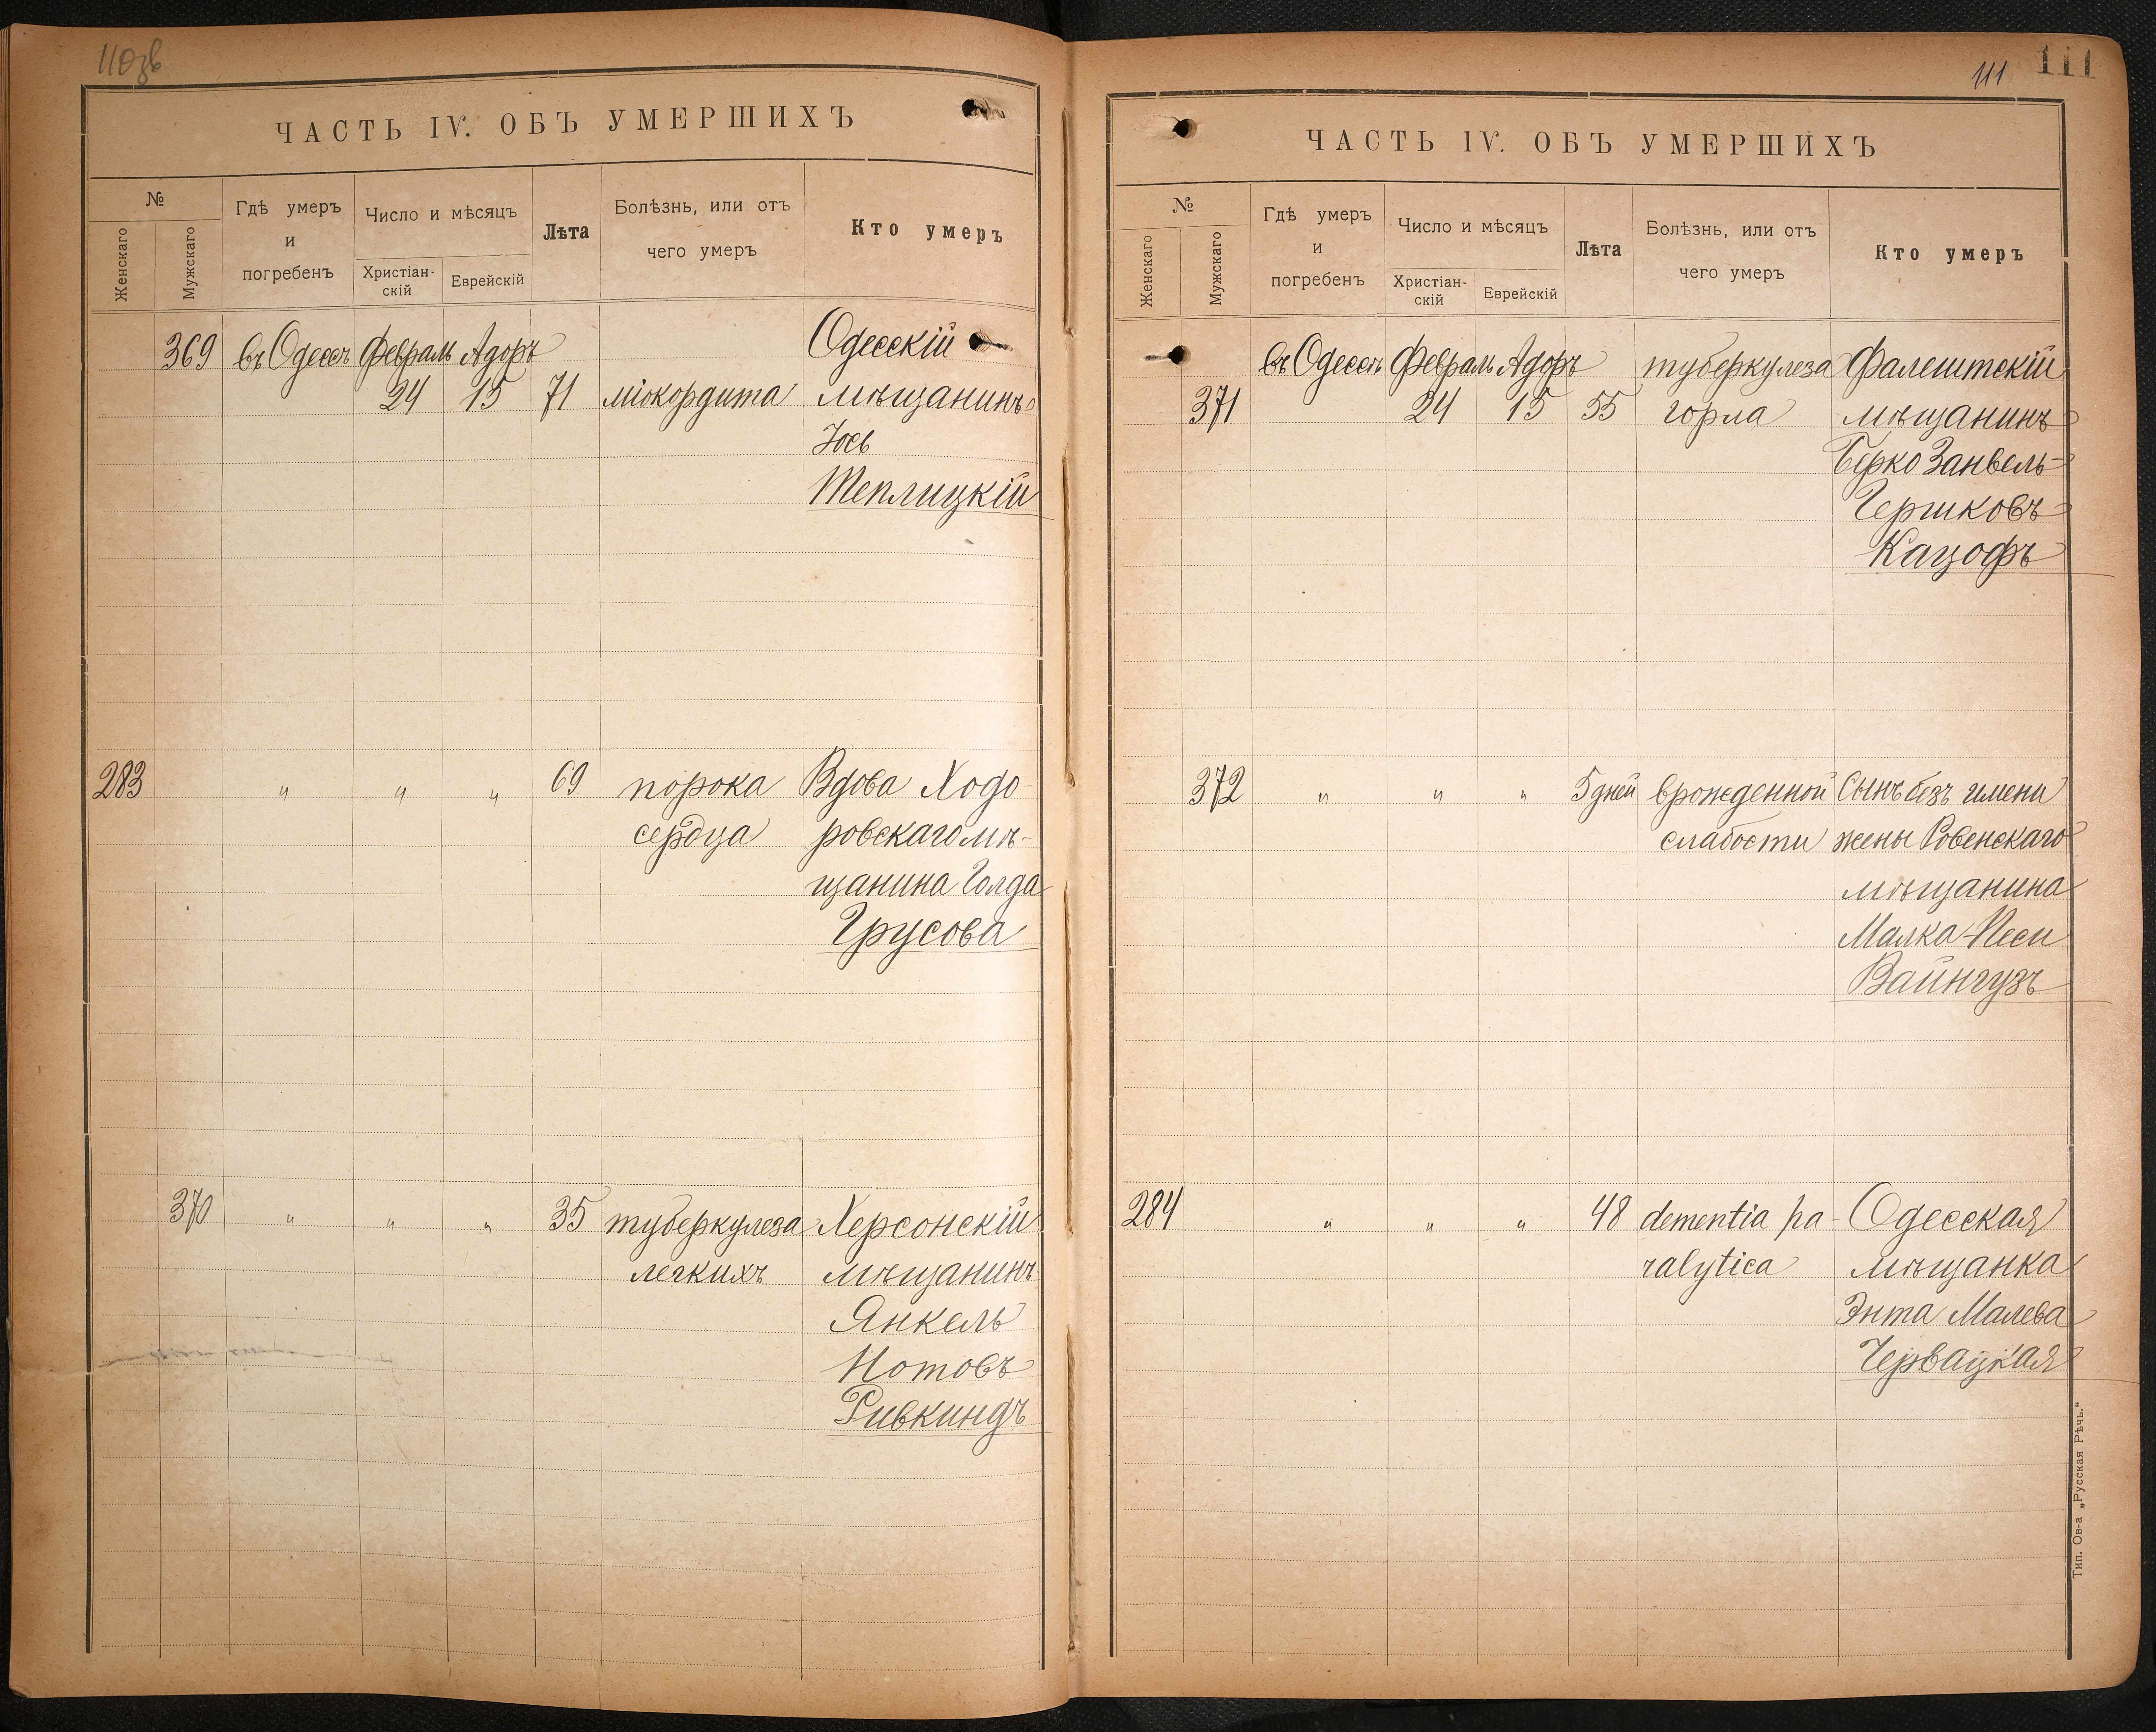 110зв
ЧАСТЬ IV. ОБЪ УМЕРШИХЪ
№
Женскаго
Мужскаго
Гдѣ умеръ
и
погребенъ
Число и мѣсяцъ
Христіан-
скій
Еврейскій
Лѣта
Болѣзнь, или отъ
чего умеръ
Кто умеръ
369 въ Одессѣ Февраль Адоръ Одесскій
24 15 71 міокордита мѣщанинъ
Іось
Теплицкій
283 " " " 69 порока Вдова Ходо-
сердца ровскаго мѣ-
щанина Голда
Грусова
370 " " " 35 туберкулеза Херсонскій
легкихъ мѣщанинъ
Янкель
Нотовъ
Ривкиндъ
111 111
ЧАСТЬ IV. ОБЪ УМЕРШИХЪ
№
Женскаго
Мужскаго
Гдѣ умеръ
и
погребенъ
Число и мѣсяцъ
Христіан-
скій
Еврейскій
Лѣта
Болѣзнь, или отъ
чего умеръ
Кто умеръ
въ Одессѣ Февраль Адоръ туберкулеза Фалештскій
371 24 15 55 горла мѣщанинъ
Берко Занвель-
Гершковъ
Кацофъ
372 " " " 5 дней врожденной Сынъ безъ имени
слабости жены Ровенскаго
мѣщанина
Малка-Песи
Вайнгузъ
284 " " " 48 dementia pa- Одесская
ralytica мѣщанка
Энта Малева
Червацкая
Тип. Ов-а „Русская Рѣчь.“